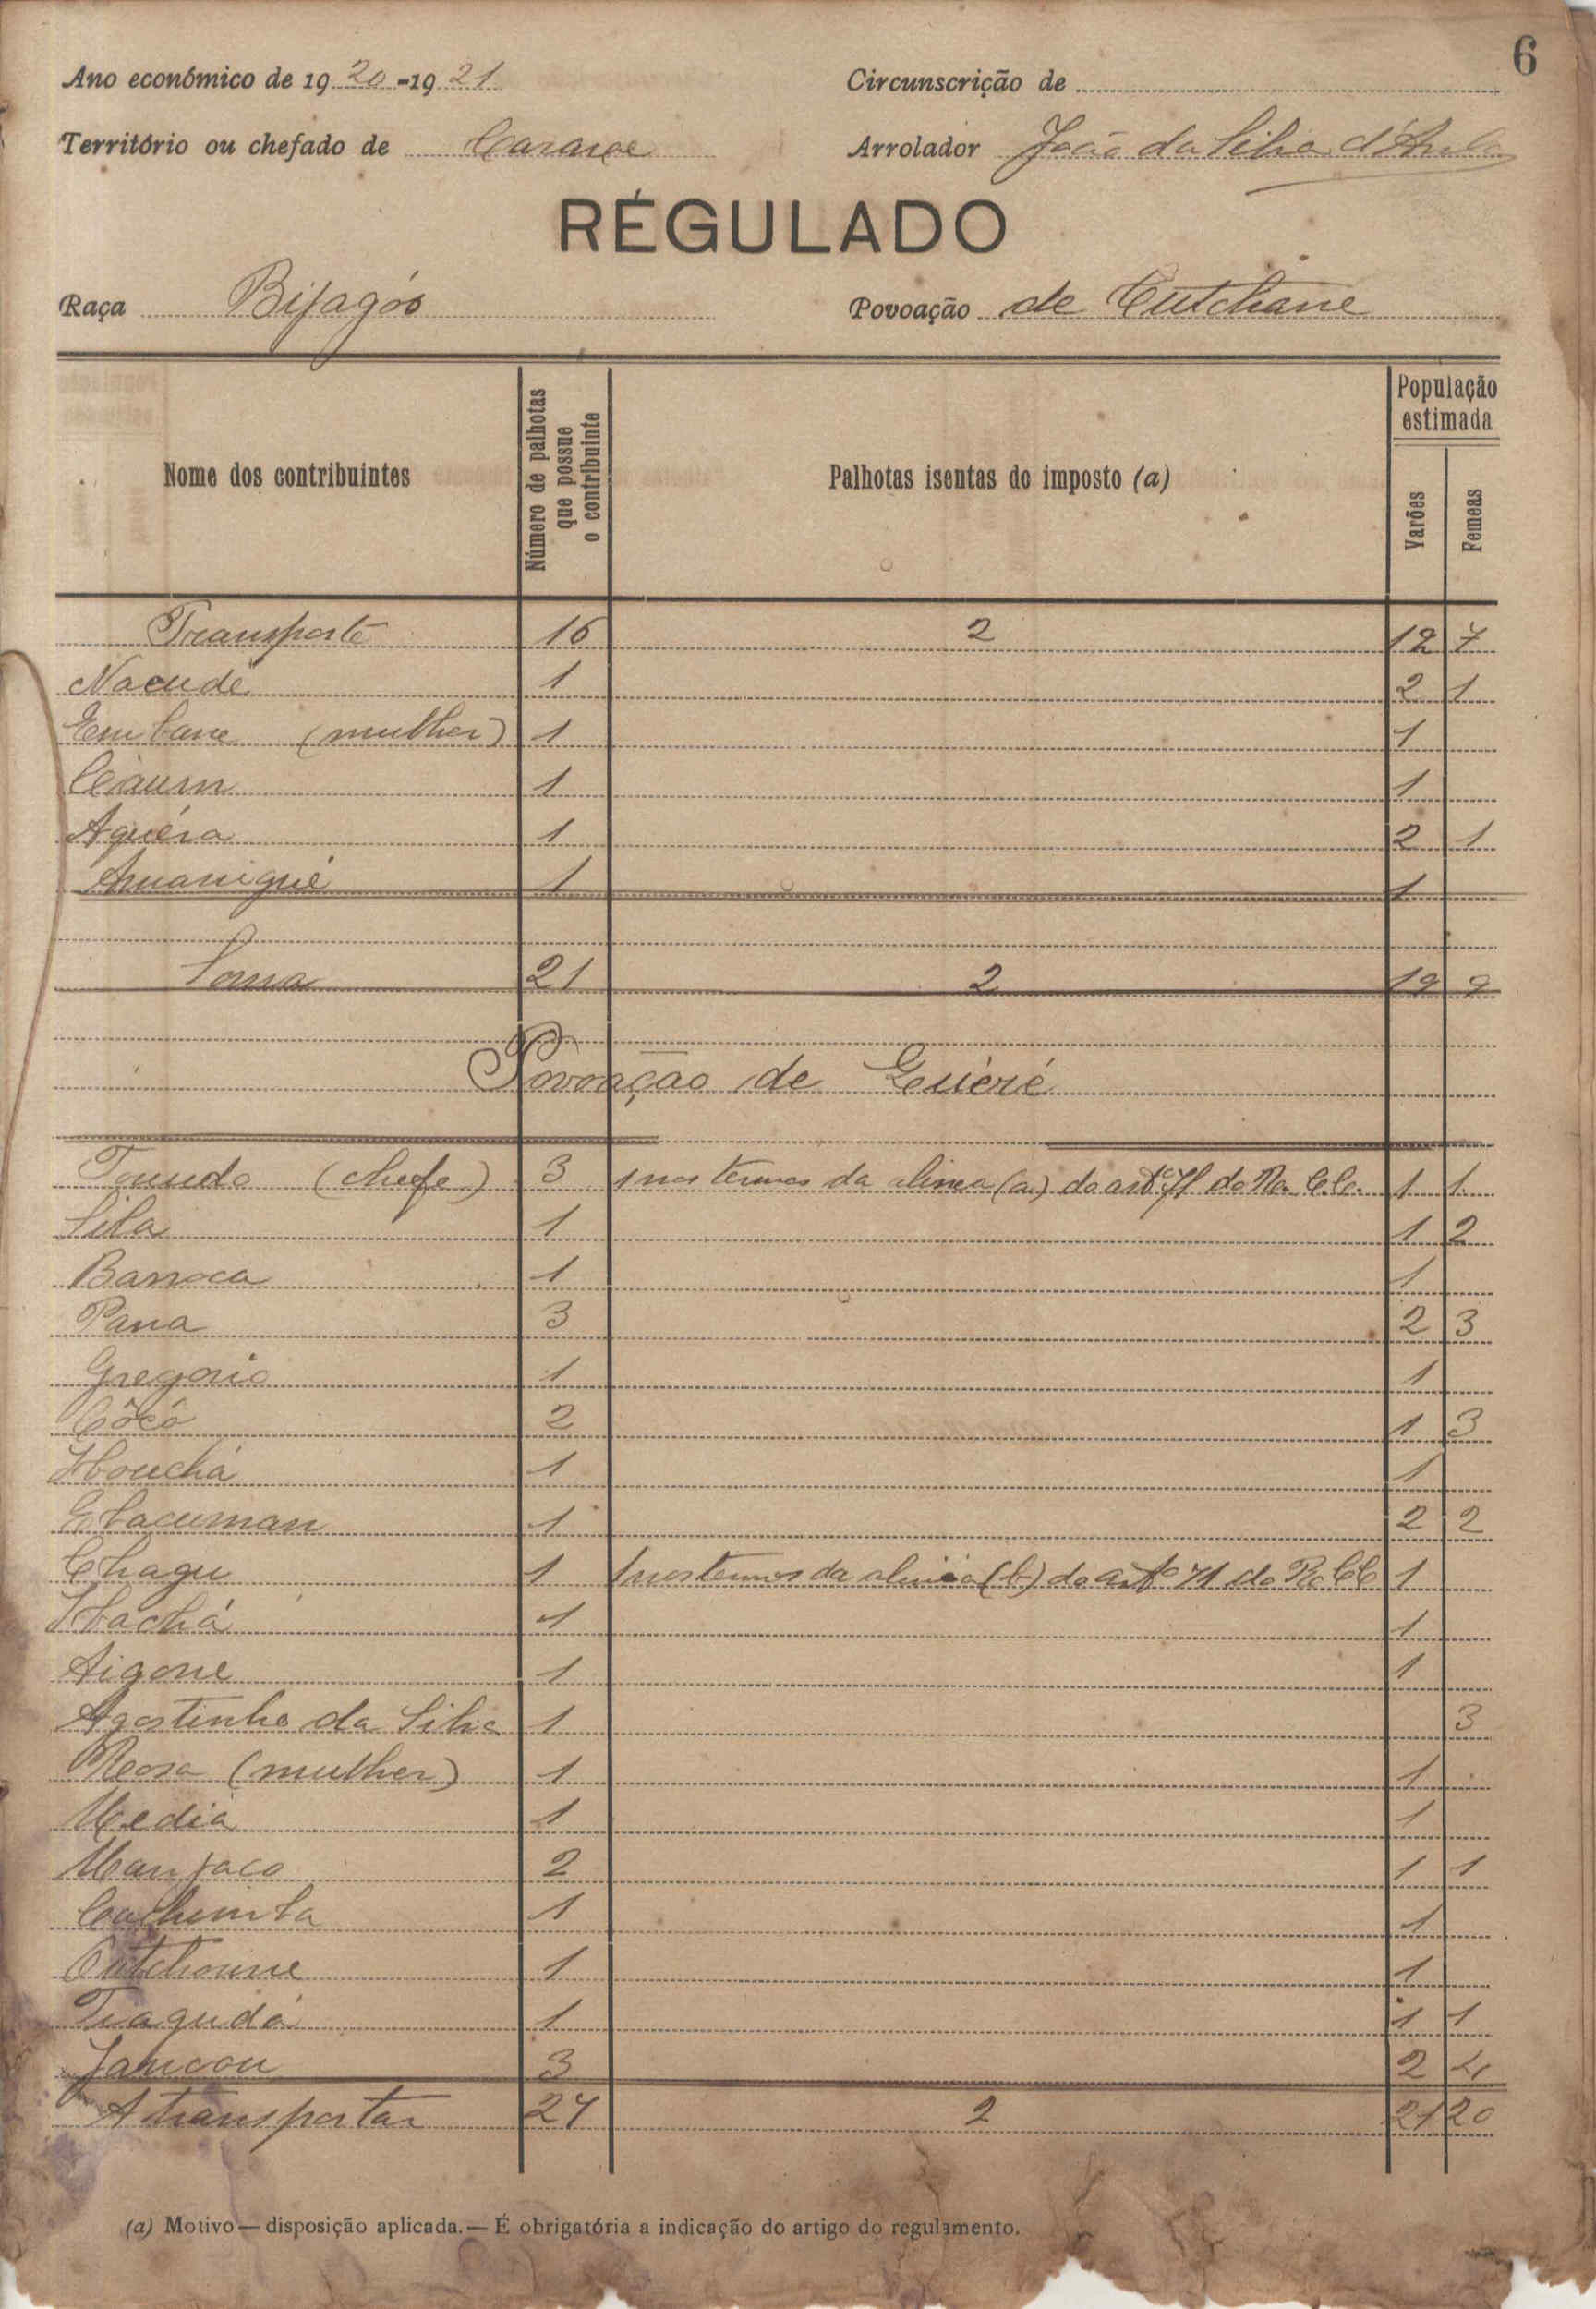 6
Ano económico de 1920-1921 Circunscrição de
Território ou chefado de Arrolador João da Silva
RÉGULADO
Raça Bijagós Povoação de Cutchane
Nome dos contribuintes Número de palhotas que possue o contribuinte Palhotas isentas do imposto (a) População estimada Varões Femeas
Transporte 16 2 12 7
Nacudé 1 2 1
(mulher) 1 1
1 1
Aguéra 1 2 1
1 1
Soma 21 2 19 9
Povoação de Guéré
(chefe) 3 1 nos termos da alinea (a) do artº 71 do R. C. C. 1 1
Sila 1 1 2
Barroca 1 1
Pana 3 2 3
Gregorio 1 1
Côcó 2 1 3
1 1
1 2 2
Chagu 1 1 nos termos da alinea (b) do artº 71 do R. C. C. 1
1 1
Aigone 1 1
Agostinho da Silva 1 3
Rosa (mulher) 1 1
Media 1 1
Manjaco 2 1 1
1 1
1 1
Tiagudá 1 1 1
Jancon 3 2 4
A transportar 27 2 21 20
(a) Motivo — disposição aplicada. — É obrigatória a indicação do artigo do regulamento.